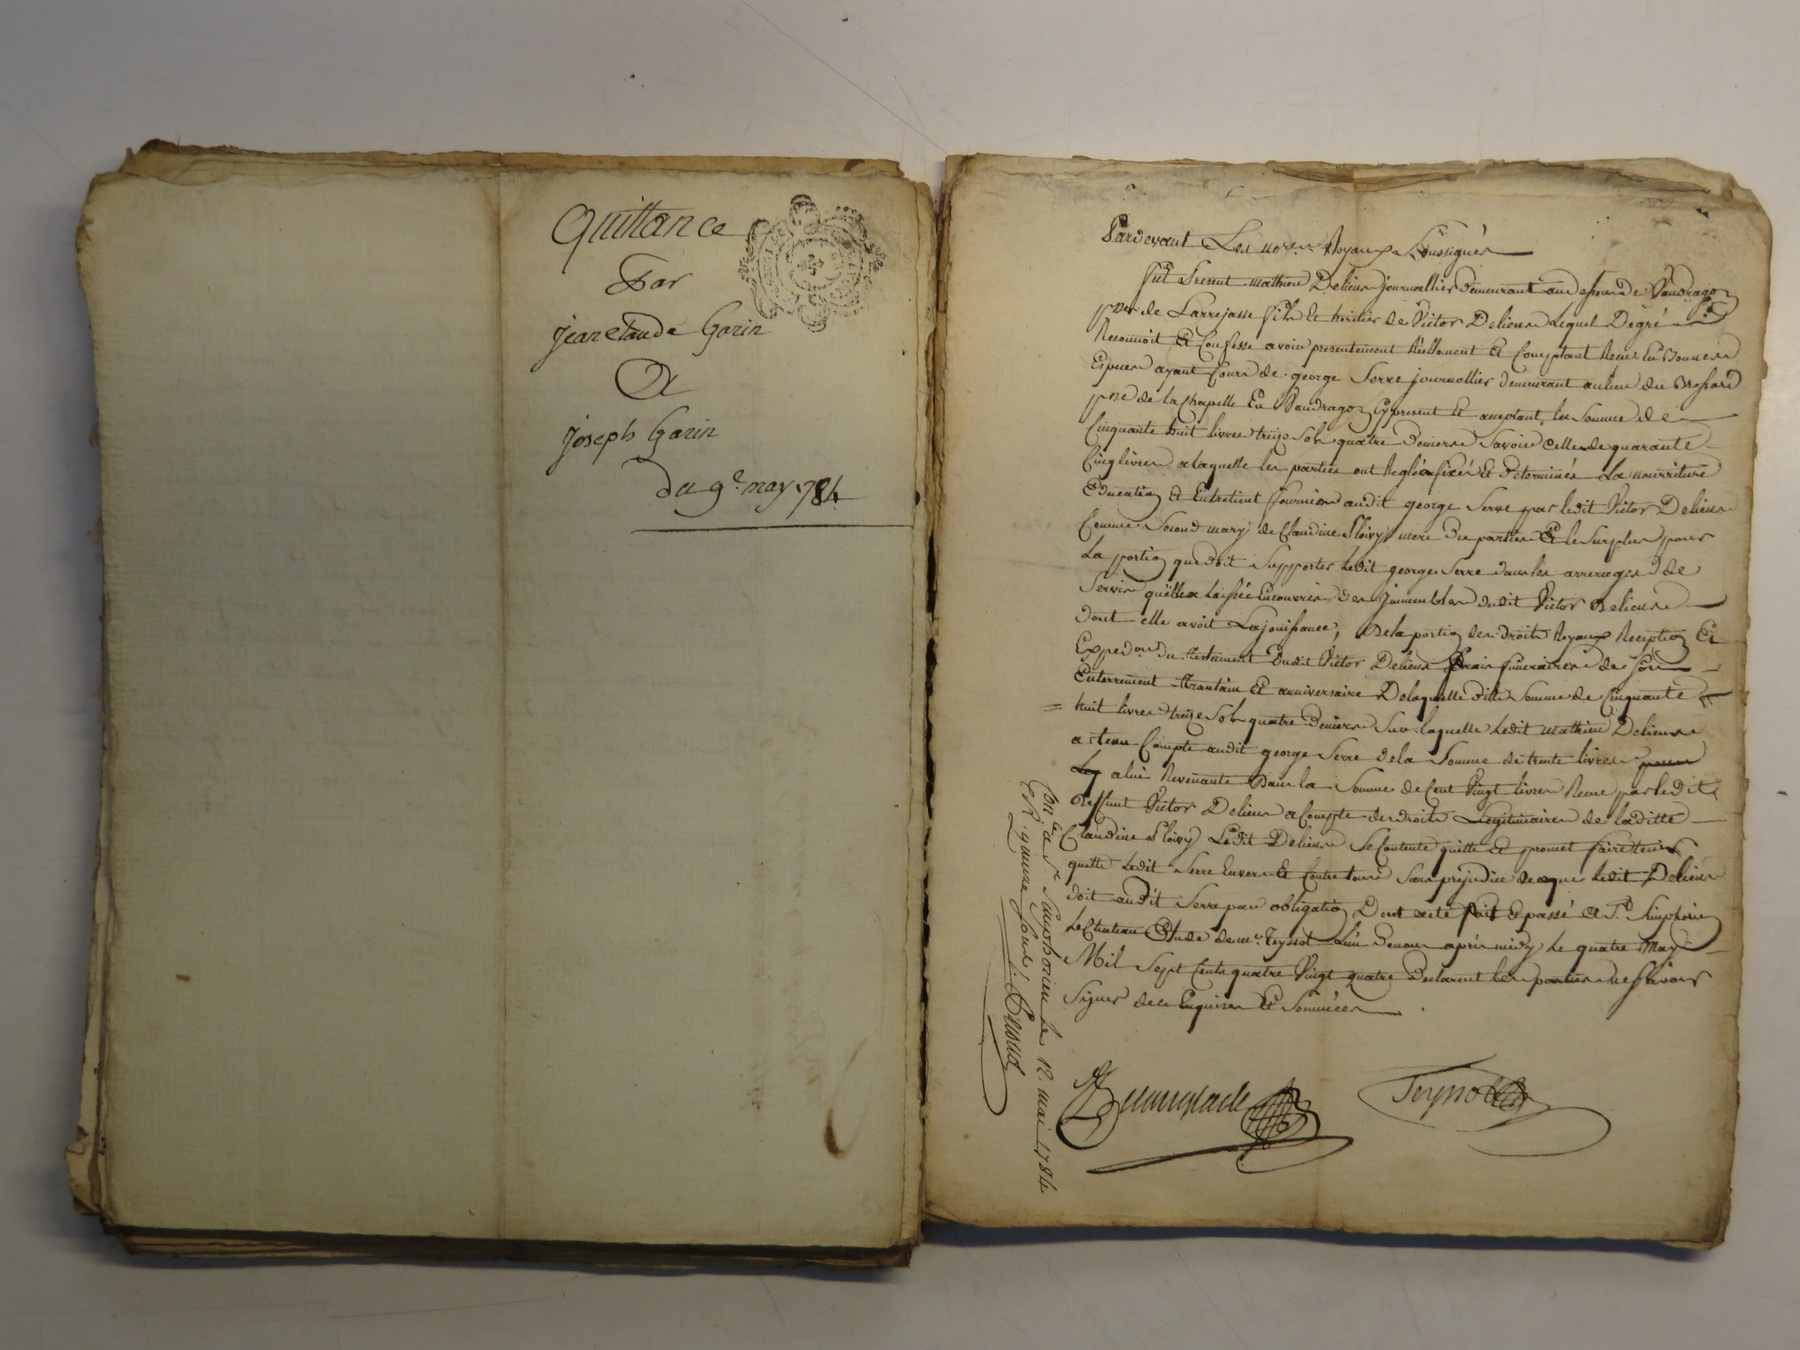 Quittance
Par
jeanclaude Garin
A
joseph Garin
du 9e. may 1784
Pardevant Les nores. Royaux Soussignés
fut Present mathieu Delieur journallier demeurant au de Vaudragon
psse de Larrejasse fils et heritier de Victor Delieur Lequel De gré
Reconnoit Et Confesse avoir presentement Réellement Et Comptant Receu En Bonnes
Especes ayant Cours de george Serre journallier demeurant au lieu du Brossard
psse de la Chapelle En Vaudragon Cy present Et acceptant, la Somme de
Cinquante huit livres treize Sols quatre deniers Savoir Celle de quarante
Cinq livres a laquelle les parties ont Reglé fixée Et determinée La nourriture
Education Et Entretient fournis audit george Serre par ledit Victor Delieur
Comme Second mary de Claudine mere des parties Et le Surplus pour
La portion que doit Supporter Ledit george Serre dans les arrerages de
Servis qu'elle a laissée Encourir des jmmeubles dudit Victor Delieur
dont elle avoit La jouissance, de la portion des droits Royaux Reception Et
Expedon. du testament dudit Victor Delieur frais funeraires de Son
Enterrement trantain Et anniversaire De laquelle ditte Somme de Cinquante
huit livres treize Sols quatre deniers Sur laquelle Ledit mathieu Delieur
a tenu Compte audit george Serre de la Somme de trente livres
a lui Revenante Dans la Somme de Cent Vingt livres Receue par ledit
deffunt Victor Delieur a Compte des droits Legitimaires de laditte
Claudine Ledit Delieur Se Contente quitte Et promet faire tenir
quitte Ledit Serre Envers Et Contre tous Sans prejudice de ce que Ledit Delieur
doit audit Serre par obligation Dont acte fait Et passé a St. Simphorien
Le Chateau Etude de me. Teyssot L'un de nous après midy Le quatre May
Mil Sept Cents quatre Vingt quatre Declarent les parties ne Scavoir
Signer de ce Enquises Et Sommées
Teyssot
Conlé a St. Simphorien le 12. mai 1784
Et R. quinze Sous